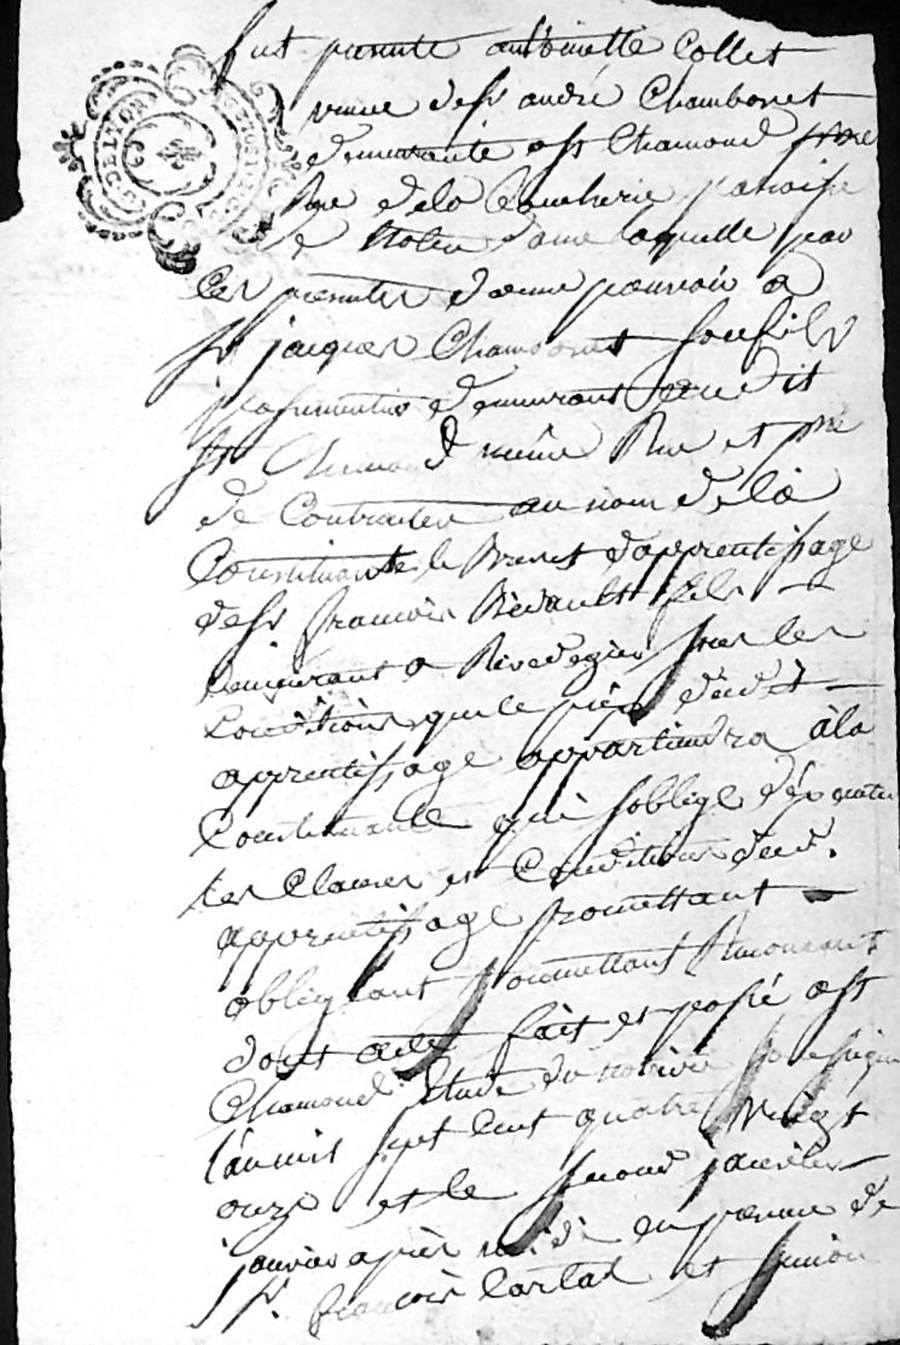 fut presente anthoinette Collet
veuve de sr andré Chambonet
demeurante a st Chamond sur
Rue dela Boucherie paroisse
de Notre dame laquelle par
Ces presentes donne pouvoir a
sr jacques Chambonet son fils
passementier demeurant audit
st Chamond même Rue et pse
de Contracter au nom de la
Constituante le Brevet d'apprentissage
de sr francois Revault fils
demeurant a Rivedegier sous les
Conditions que le prix dudit
apprentissage appartiendra à la
Constituante qui soblige d'éxécuter
les Clauses et Conditions dud.
apprentissage promettant
obligeant soumettant Renonceant
dont acte fait et passé a st
Chamond Etude du notaire soussigné
l'an mil sept cent quatre vingt
onze et le second
janvier après midi en presence de
sr. francois Carlat et simeon